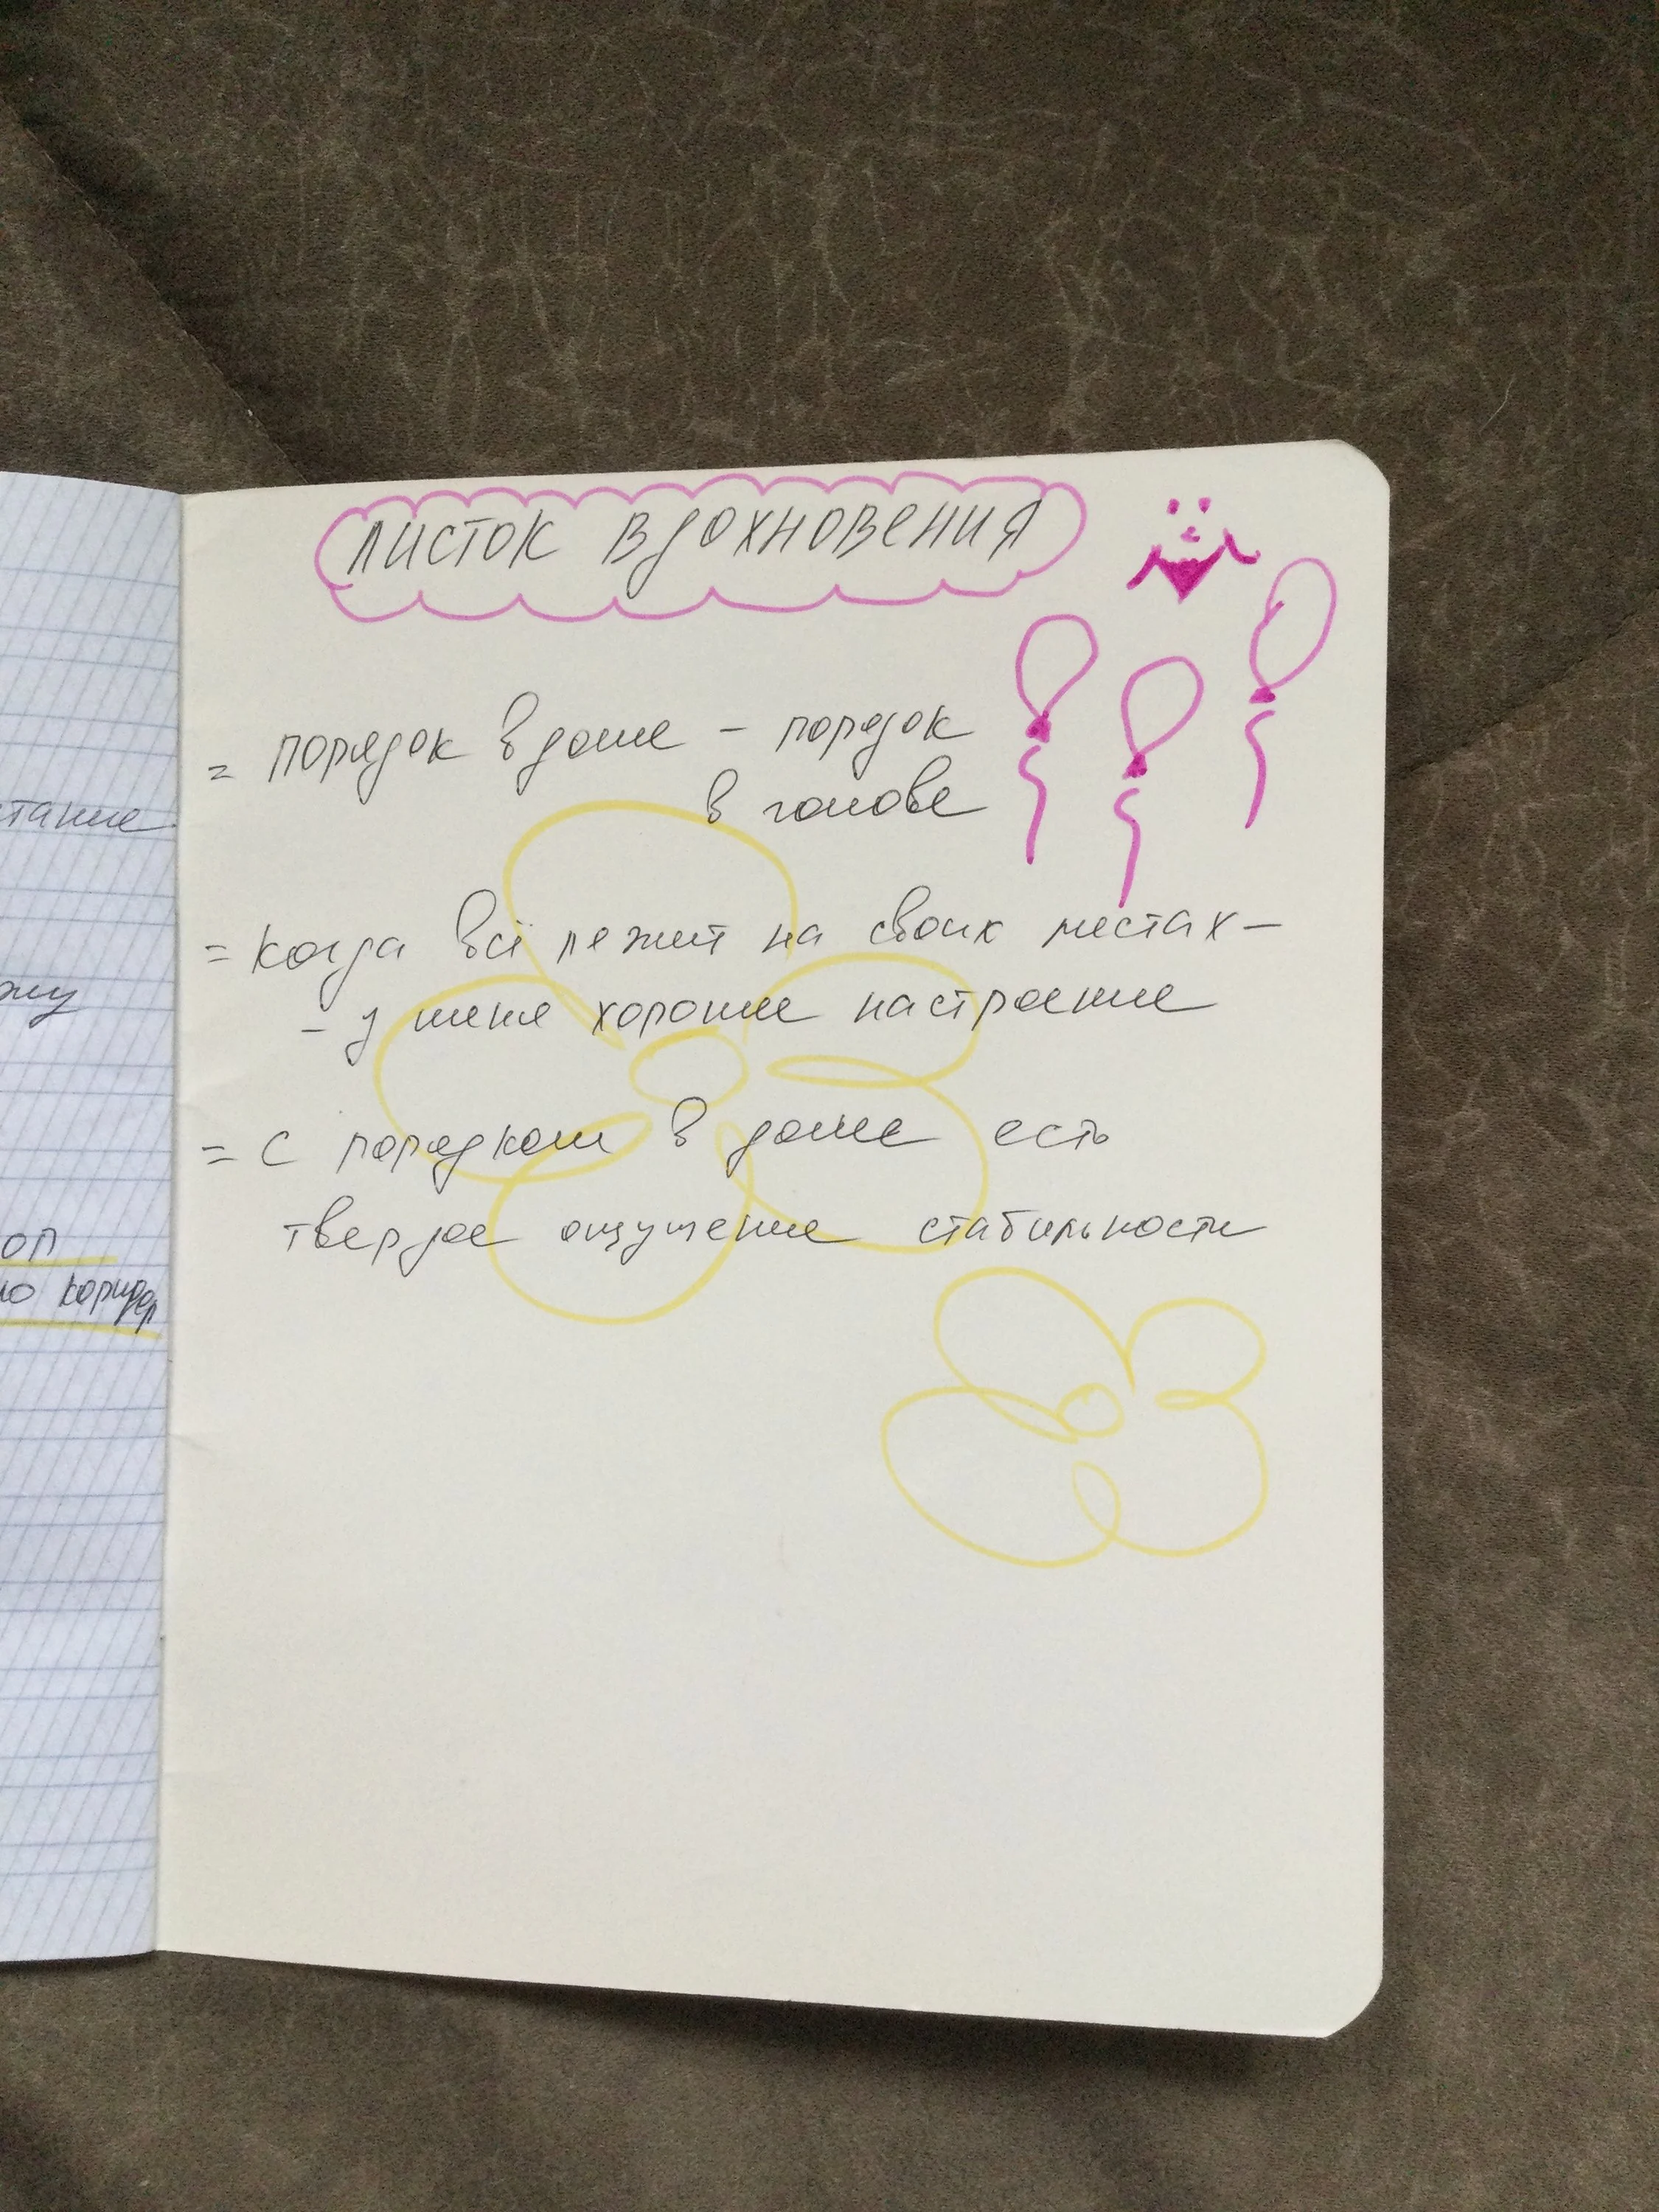 ЛИСТОК ВДОХНОВЕНИЯ
= порядок в доме – порядок
в голове
= когда всё лежит на своих местах –
– у меня хорошее настроение
= с порядком в доме есть
твердое ощущение стабильности
коридор